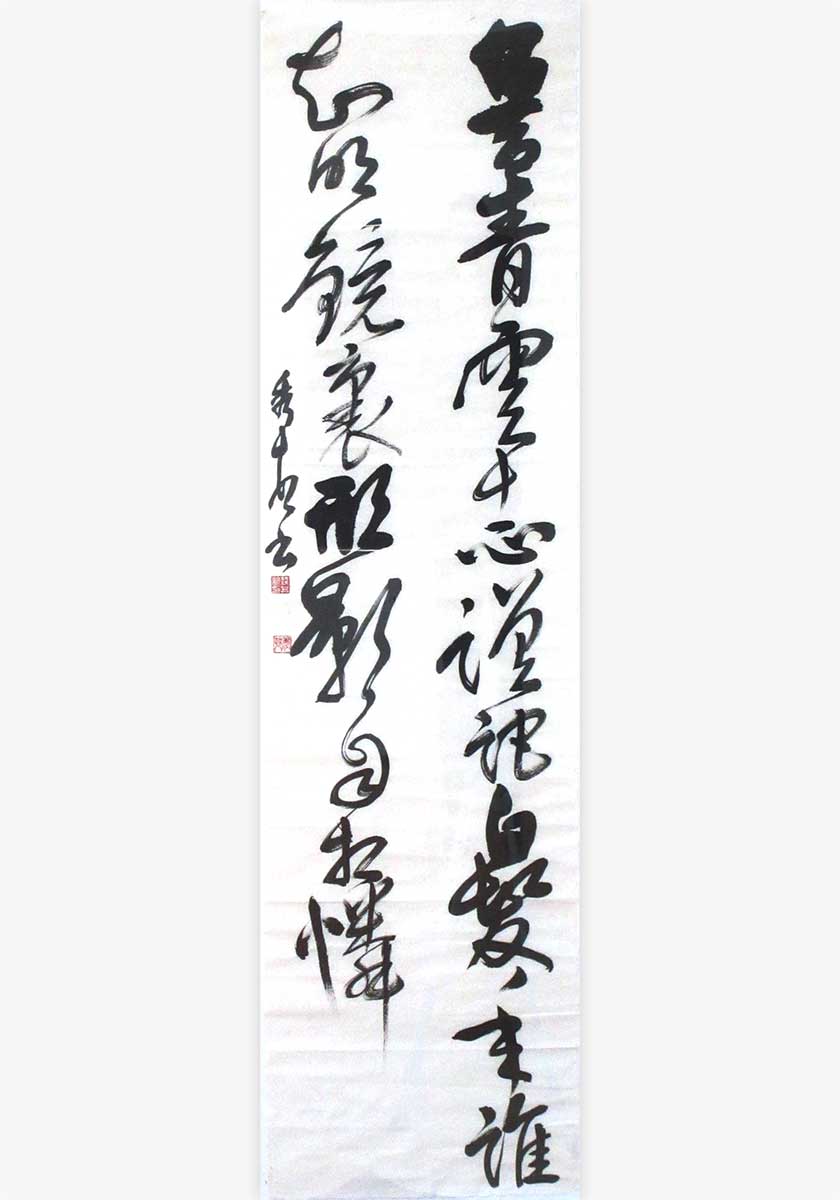 宿昔青雲志蹉跎白髮年誰
知明鏡裏形影自相憐
書